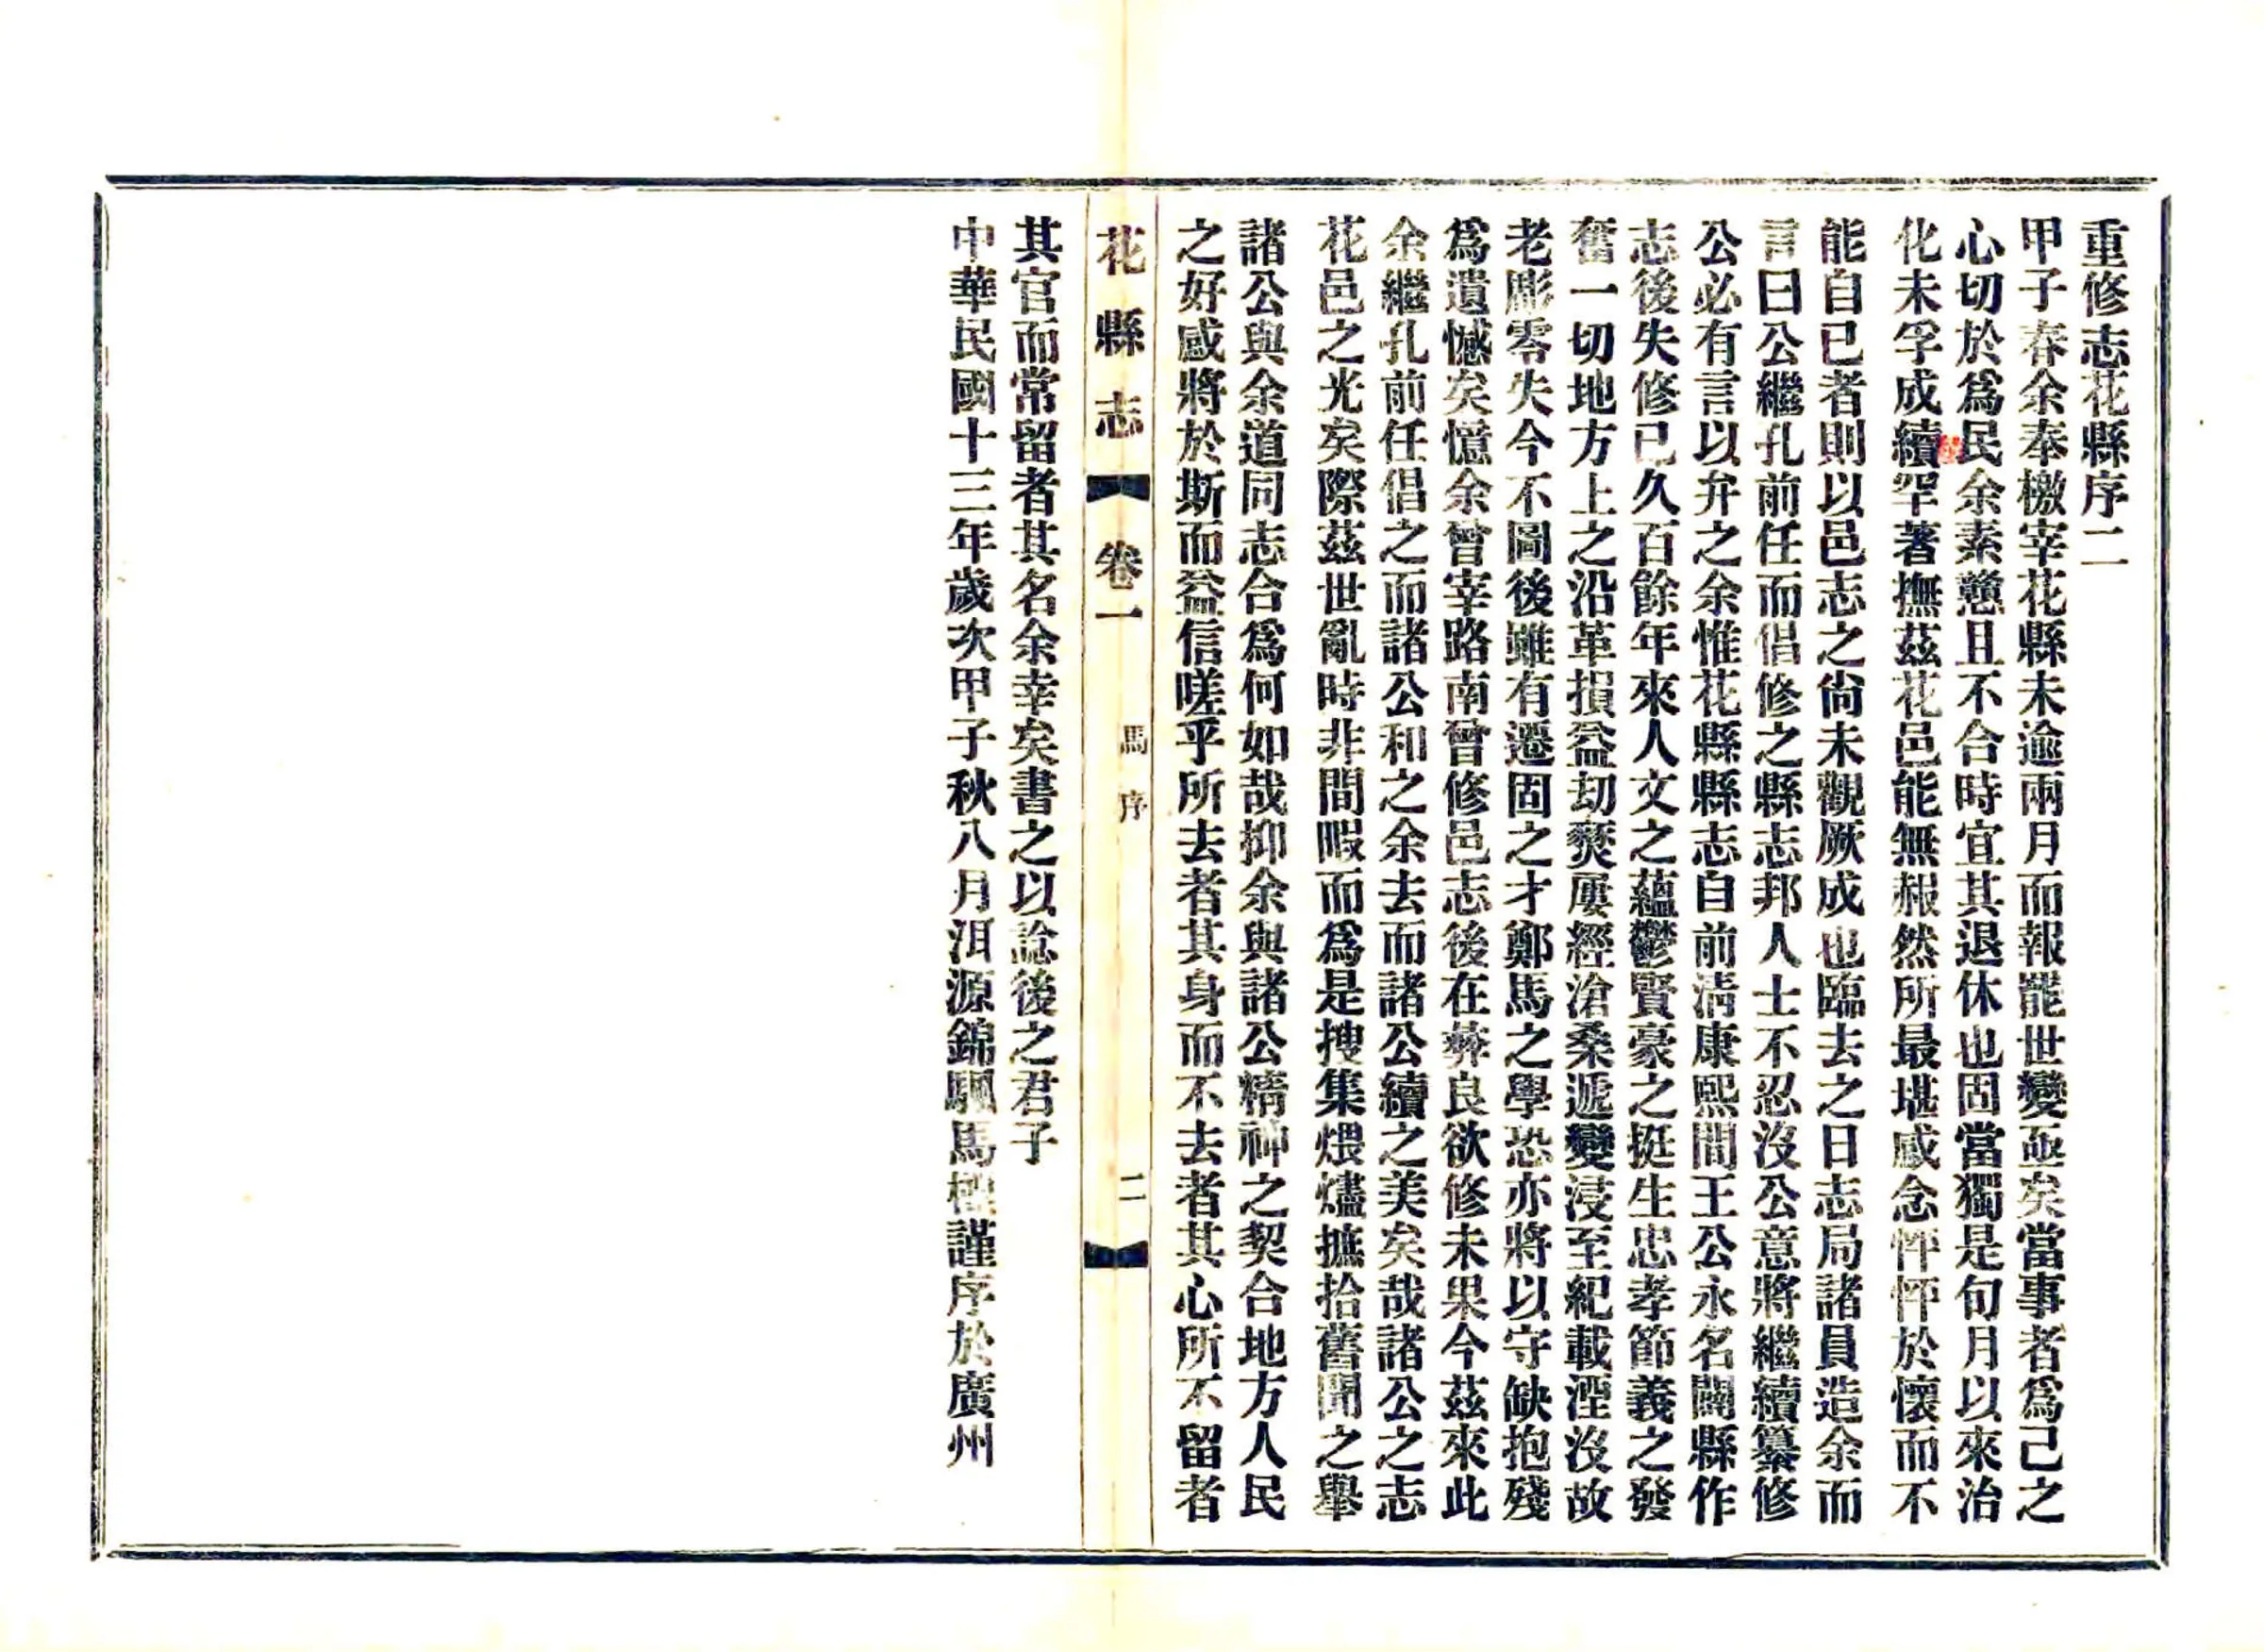 重修志花縣序二
甲子春余奉檄宰花縣未逾兩月而報罷世變亟矣當事者爲己之
心切於爲民余素戇且不合時宜其退休也固當獨是旬月以來治
化未孚成績罕著撫茲花邑能無赧然所最堪感念怦怦於懷而不
能自已者則以邑志之尙未觀厥成也臨去之日志局諸員造余而
言曰公繼孔前任而倡修之縣志邦人士不忍沒公意將繼續纂修
公必有言以弁之余惟花縣縣志自前淸康熙間王公永名闢縣作
志後失修已久百餘年來人文之蘊鬱賢豪之挺生忠孝節義之發
奮一切地方上之沿革損益刧燹屢經滄桑遞變浸至紀載湮沒故
老彫零失今不圖後雖有遷固之才鄭馬之學恐亦將以守缺抱殘
爲遺憾矣憶余曾宰路南曾修邑志後在彝良欲修未果今茲來此
余繼孔前任倡之而諸公和之余去而諸公續之美矣哉諸公之志
花邑之光矣際茲世亂時非間暇而爲是搜集煨燼摭拾舊聞之舉
諸公與余道同志合爲何如哉抑余與諸公精神之契合地方人民
之好感將於斯而益信嗟乎所去者其身而不去者其心所不留者
花縣志 卷一 馬序 二
其官而常留者其名余幸矣書之以諗後之君子
中華民國十三年歲次甲子秋八月洱源錦驷馬謹序於廣州